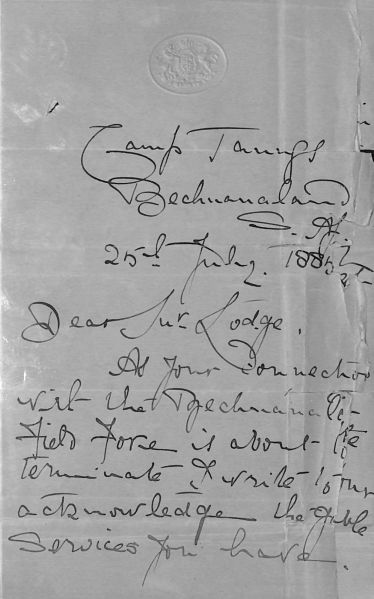 Camp Taungs
Bechuanaland
S. Af.
25th July. 1885
Dear Mr Lodge.
As your connection
with the Bechuana
Field Force is about to
terminate I write to
acknowledge the able
services you have